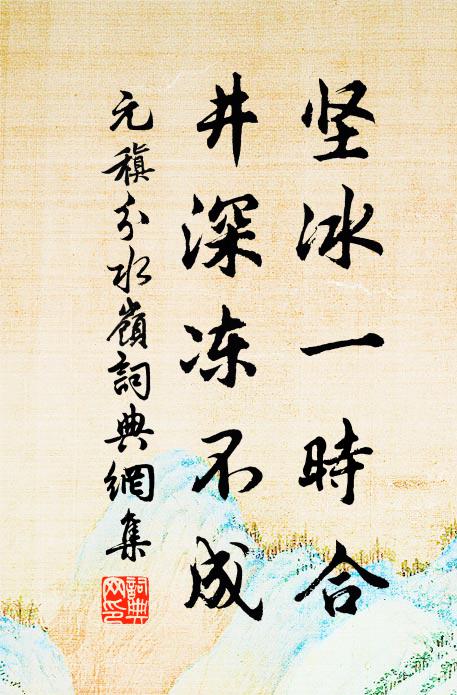 坚冰一時合
井深冻不成
元稹分水嶺詞典網集
詞典網印